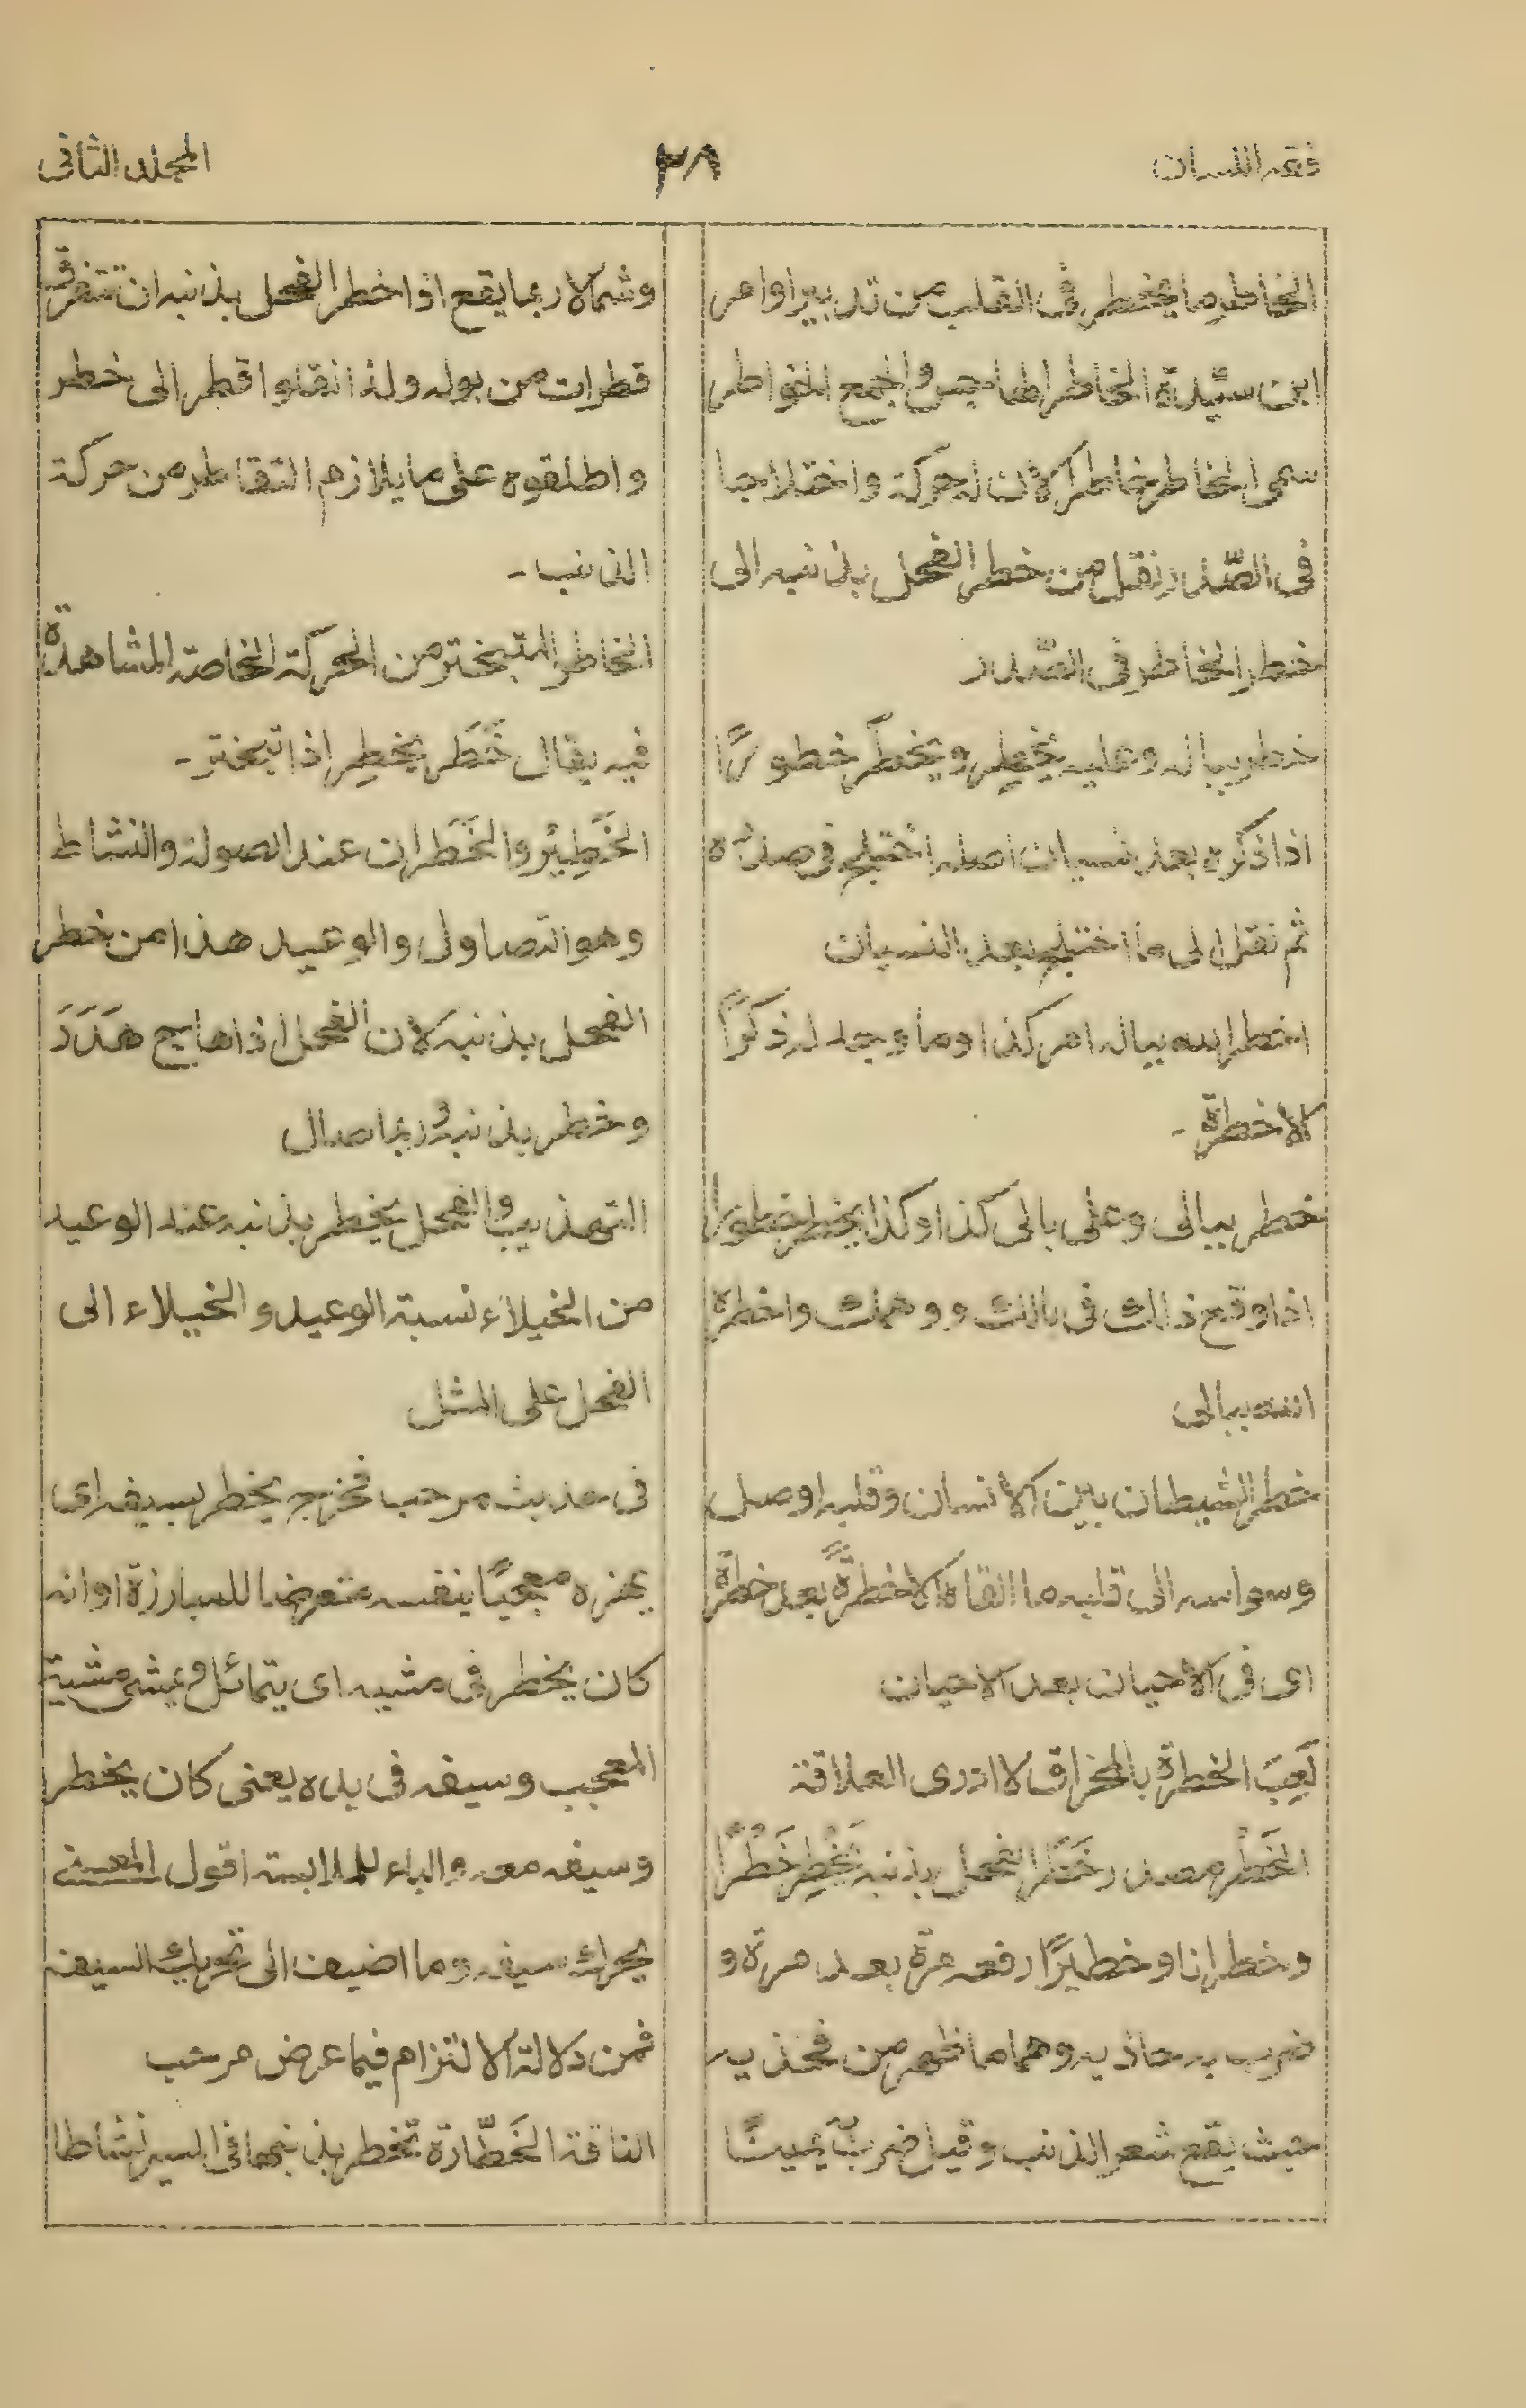 فقه اللسان
٣٨
المجلد الثانى
الخاطر ما يخطر فى القلب من تدبير او امر
ابن سيّدة الخاطر الهاجس والجمع الخواطر
سمى الخاطر خاطرا لان له حركة واختلاجا
فى الصّدر نقل من خطر الفحل بذنبه الى
خطر الخاطر فى الصّدر
خطر بباله وعليه يخطِر ويخطُر خطورًا
اذا ذكره بعد نسيان اصله اختلج فى صدره
ثم نقل الى ما اختلج بعد النسيان
اخطر الله بباله امر كذا وما وجد له ذكرًا
الا خطرة -
خطر ببالى وعلى بالى كذا وكذا يخطر خطورا
اذا وقع ذلك فى بالك ووهمك واخطره
الله ببالى
خطر الشيطان بين الانسان وقلبه اوصل
وسواسه الى قلبه ما القاه الا خطرةً بعد خطرة
اى فى الاحيان بعد الاحيان
لَعِبَ الخطرة بالمخراق لا ادرى العلاقة
الخَطْر مصدر خَطَر الفحل بذنبه يَخْطِر خَطْرًا
وخطرانا وخطيرًا رفعه مرّة بعد مرة و
ضرب به حاذيه وهما ما ظهر من فخذيه
حيث يقع شعر الذنب وقيل ضرب به يمينًا
وشمالا ربما يقع اذا خطر الفحل بذنبه ان تتفرق
قطرات من بوله ولذا نقلوا قطر الى خطر
واطلقوه على ما يلازم التقاطر من حركة
الذنب -
الخاطر المتبختر من الحركة الخاصة المشاهدة
فيه يقال خَطَر يخطِر اذا تبختر -
الخَطِيْر والخَطَران عند الصولة والنشاط
وهو التصاول والوعيد هذا من خطر
الفحل بذنبه لان الفحل اذا هاج هَدَرَ
وخطر بذنبه وربما صال
التهذيب والفحل يخطر بذنبه عند الوعيد
من الخيلاء نسبة الوعيد والخيلاء الى
الفحل على المثل
فى حديث مرحب فخرج يخطر بسيفه اى
يهزه معجبًا بنفسه متعرضا للمبارزة او انه
كان يخطر فى مشيه اى يتمائل ويمشى مشية
المعجب وسيفه فى يده يعنى كان يخطر
وسيفه معه والباء للملابسة اقول المعنى
يحرك سيفه وما اضيف الى تحريك السيف
فمن دلالة الالتزام فيما عرض مرحب
الناقة الخَطّارة تخطر بذنبها فى السير نشاطا